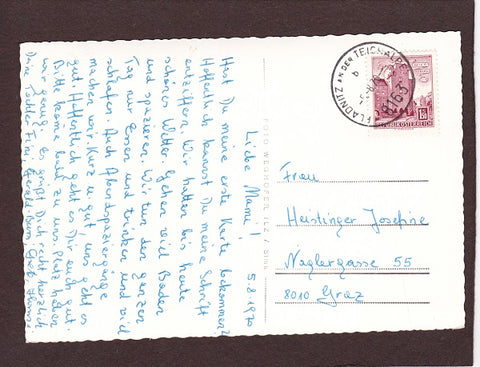 5.8.1970
Liebe Mami!
Hast Du meine erste Karte bekommen?
Hoffentlich kannst Du meine Schrift
entziffern. Wir hatten bis heute
schönes Wetter. Gehen viel Baden
und spazieren. Wir tun den ganzen
Tag nur Essen und trinken und viel
schlafen. Auch Abendspaziergänge
machen wir. Kurz u. gut uns geht es
gut. Hoffentlich geht es Dir auch gut.
Bitte komme bald zu uns. Platz haben
wir genug. Es grüßt Dich recht herzlich
Deine Tochter
FLADNITZ AN DER TEICHALPE
8163
REPUBLIK ÖSTERREICH
Frau
Heistinger Josefine
Naglergasse 55
8010 Graz